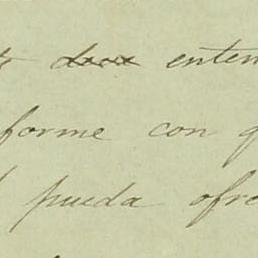 enten
forme con q
pueda ofre